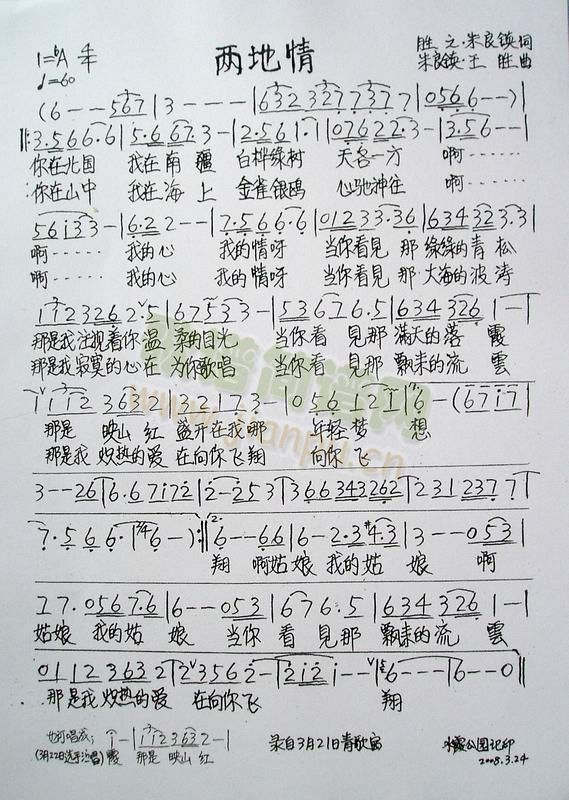 两地情
1=♭A 4/4
♩=60
胜之·朱良镇词
朱良镇·王胜曲
(6 - - 567 | 3 - - - | 632 327 737 7 | 056 6 - -) |
3·566 6·6 | 5·667 3 - | 2·561 1·1 | 07622 2·3 - | 3·56 - - |
你在北国 我在南疆 白桦绿树 天各一方 啊……
你在山中 我在海上 金雀银鸥 心驰神往 啊……
56i33 - | 6·22 - - | 7·566 6·6 | 0123 3·36 | 634323·3 |
啊…… 我的心 我的情呀 当你看見 那绿绿的青松
啊…… 我的心 我的情呀 当你看見 那大海的波涛
11232625 | 67533 - | 53676·5 | 634326 | 1 - - |
那是我注視着你温柔的目光 当你看見那满天的落霞
那是我寂寞的心在为你歌唱 当你看見那飘来的流雲
1112363 | 132173 - | 056121 | 6 - (6717 |
那是映山红盛开在我哪 年轻梦想
那是我灼热的爱在向你飞翔 向你飞
3 - - 26 | 6·67i72 | 2 - 253 | 3664343262 | 2312377 |
7·566 6· | 6 -) :|| 6 - - 66 | 6 - 2·343 | 3 - - 053 |
翔 啊姑娘我的姑娘 啊
17·0567·6 | 6 - - 053 | 6765·5 | 634326 | 1 - |
姑娘我的姑娘 当你看見那飘来的流雲
01123632 | 23562 - | 2i2i - - | 6 - - - | 6 - - 0 ||
那是我灼热的爱在向你飞 翔
也可唱成: 1 - | 11123632 - |
(3月22日选手演唱) 霞 那是映山红
录自3月21日青歌赛
2008.3.24